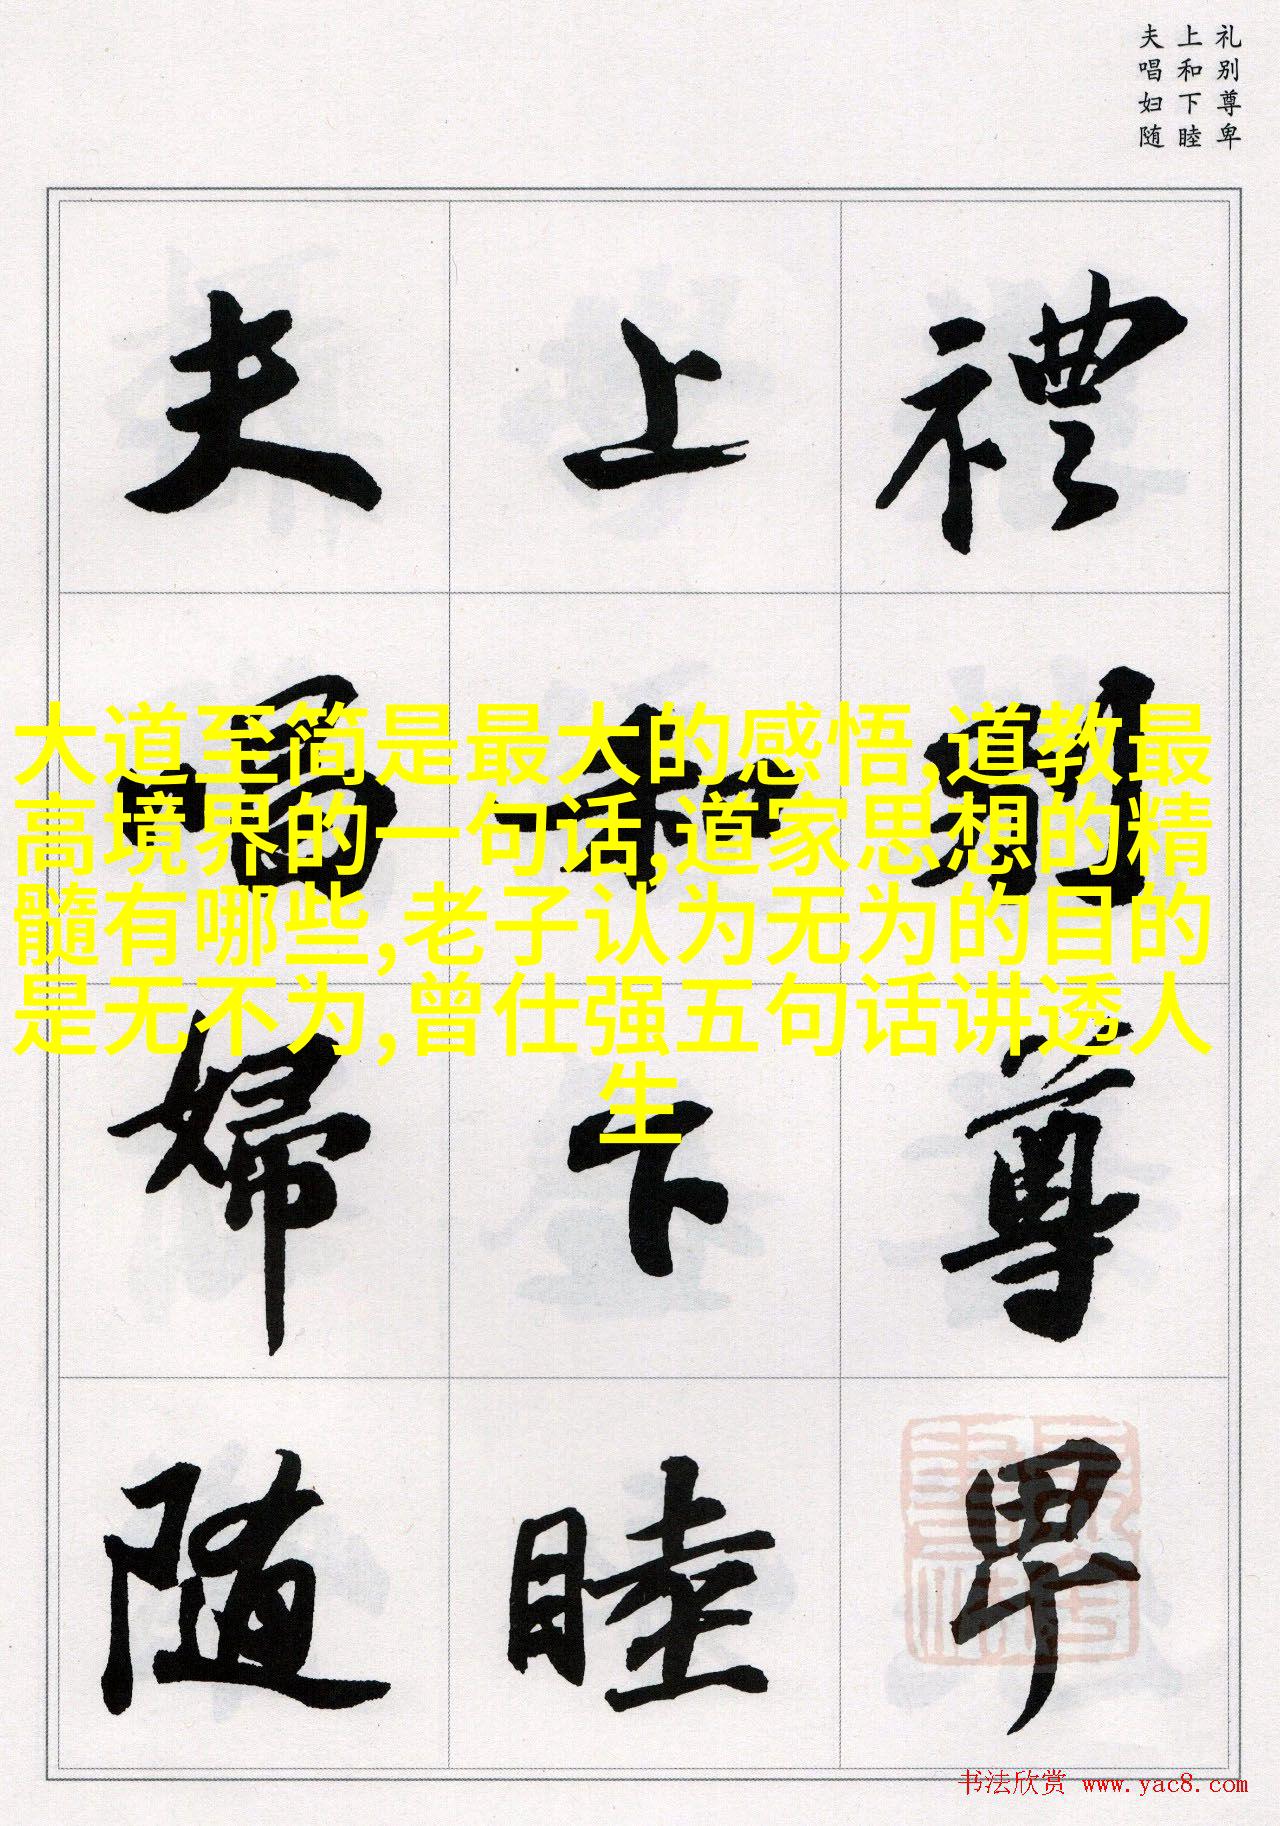 礼别尊卑
上和下睦
夫唱妇随
禮別尊卑
上和下睦
夫唱婦随
大道至简是最大的感悟,道教最
高境界的一句话,道家思想的精
髓有哪些,老子认为无为的目的
是无不为,曾仕强五句话讲透人
生
书法欣赏 www.yac8.com